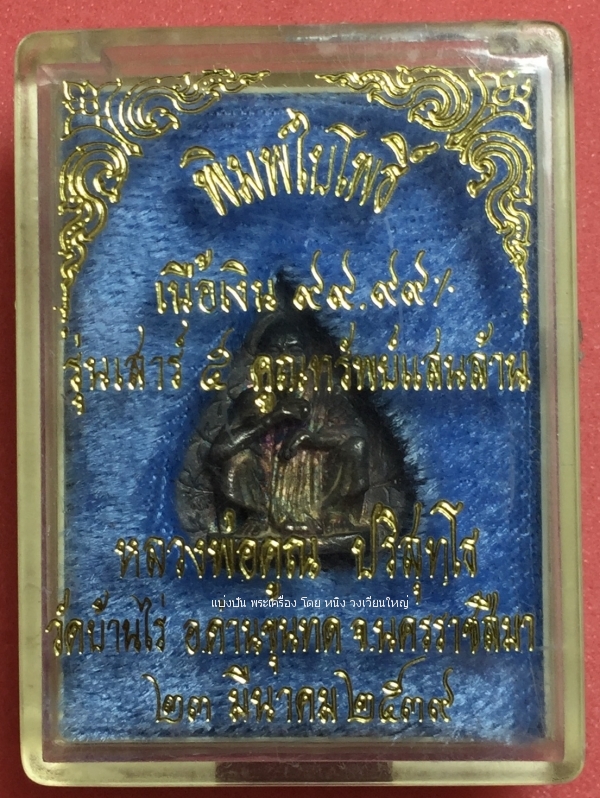 พิมพ์ใบโพธิ์
เนื้อเงิน ๙๙.๙๙%
รุ่นเสาร์ ๕ คูณทรัพย์แสนล้าน
หลวงพ่อคูณ ปริสุทฺโธ
แบ่งปัน พระเครื่อง โดย หนิง วงเวียนใหญ่
วัดบ้านไร่ อ.ด่านขุนทด จ.นครราชสีมา
๒๓ มีนาคม ๒๕๓๙